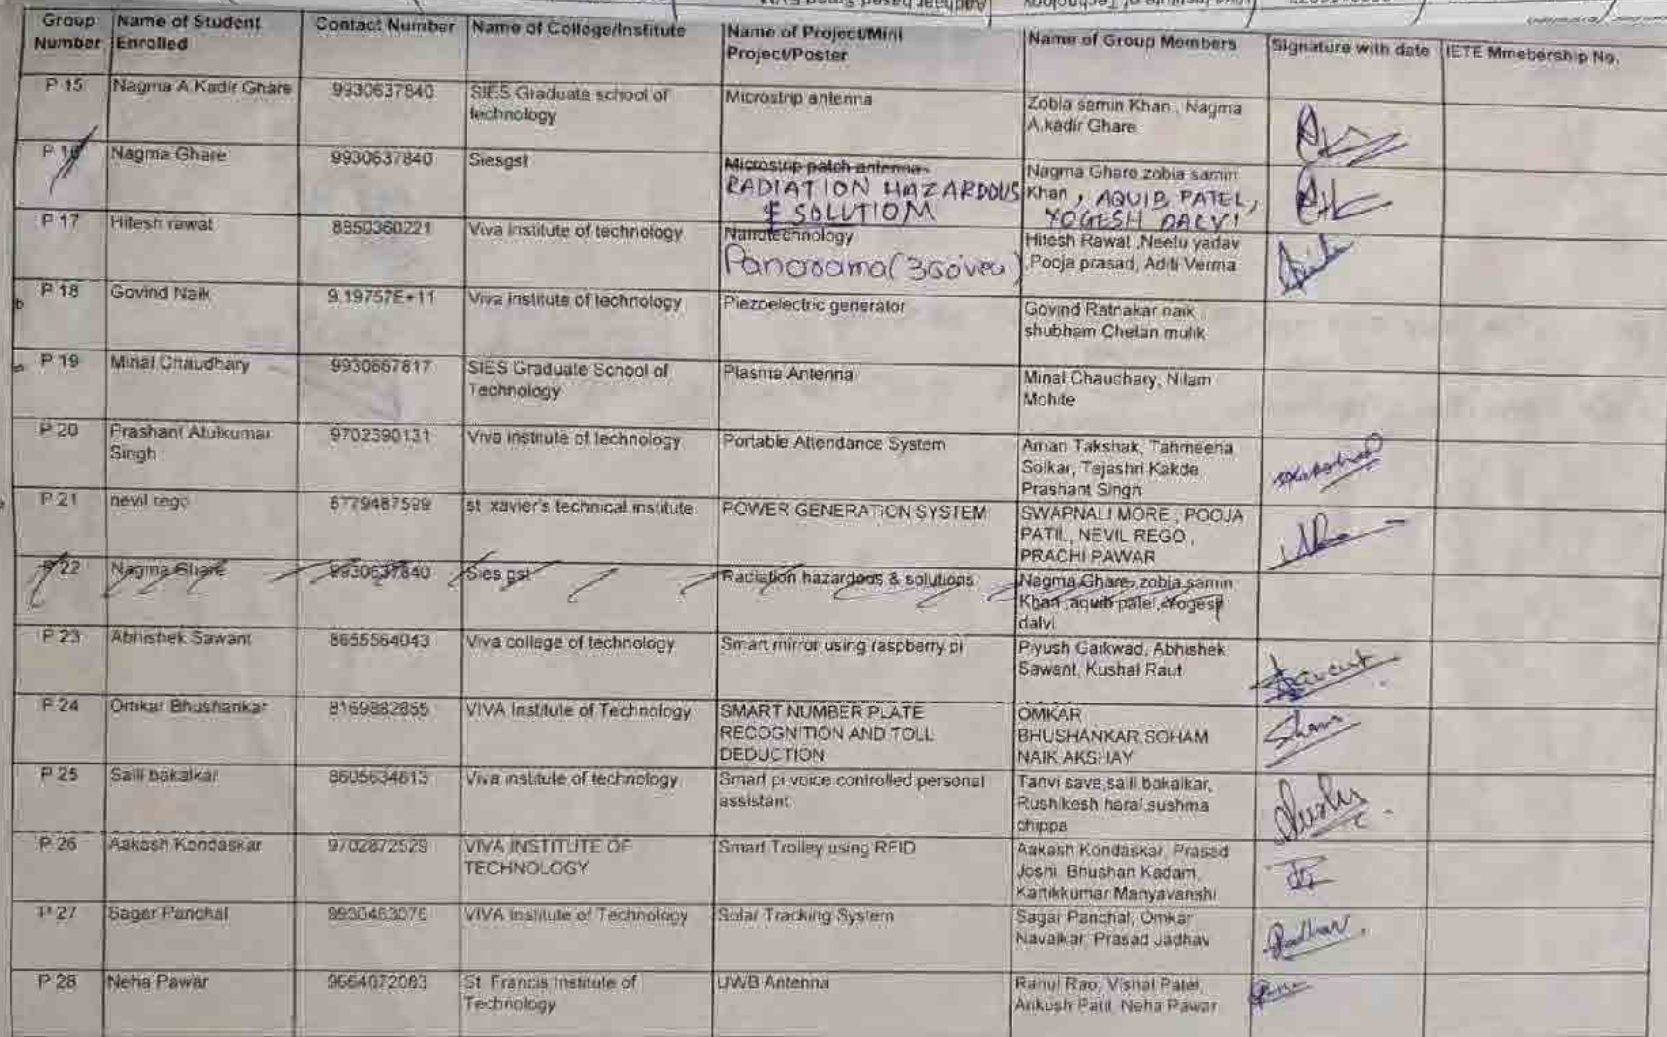 Group Number Name of Student Enrolled Contact Number Name of College/Institute Name of Project/Mini Project/Poster Name of Group Members Signature with date IETE Mmebership No.
P 15 Nagma A.Kadir Ghare 9930637840 SIES Graduate school of technology Microstrip antenna Zobia samin Khan, Nagma A.kadir Ghare
P 16 Nagma Ghare 9930637840 Siesgst Microstrip patch antenna RADIATION HAZARDOUS & SOLUTION Nagma Ghare zobia samin Khan, AQUIB PATEL, YOGESH DALVI
P 17 Hitesh rawat 8850360221 Viva institute of technology Nanotechnology Panorama Hitesh Rawat ,Neetu yadav ,Pooja prasad, Aditi Verma
P 18 Govind Naik 9.19757E+11 Viva institute of technology Piezoelectric generator Govind Ratnakar naik shubham Chetan mulik
P 19 Minal Chaudhary 9930667817 SIES Graduate School of Technology Plasma Antenna Minal Chaudhary, Nilam Mohite
P 20 Prashant Atulkumar Singh 9702390131 Viva institute of technology Portable Attendance System Aman Takshak, Tahmeena Solkar, Tejashri Kakde Prashant Singh
P 21 nevil rego 8779487599 st xavier's technical institute POWER GENERATION SYSTEM SWAPNALI MORE , POOJA PATIL, NEVIL REGO , PRACHI PAWAR
P 22 Nagma Ghare 9930637840 Sies gst Radiation hazardous & solutions Nagma Ghare, zobia samin Khan ,aquib patel, Yogesh dalvi
P 23 Abhishek Sawant 8655564043 Viva college of technology Smart mirror using raspberry pi Piyush Gaikwad, Abhishek Sawant, Kushal Raut
P 24 Omkar Bhushankar 8169882855 VIVA Institute of Technology SMART NUMBER PLATE RECOGNITION AND TOLL DEDUCTION OMKAR BHUSHANKAR,SOHAM NAIK,AKSHAY
P 25 Saili bakalkar 8605634613 Viva institute of technology Smart pi voice controlled personal assistant Tanvi save,saili bakalkar, Rushikesh haral,sushma chippa
P 26 Aakash Kondaskar 9702872529 VIVA INSTITUTE OF TECHNOLOGY Smart Trolley using RFID Aakash Kondaskar, Prasad Joshi, Bhushan Kadam, Kartikkumar Manyavanshi
P 27 Sagar Panchal 9930463076 VIVA Institute of Technology Solar Tracking System Sagar Panchal, Omkar Navalkar, Prasad Jadhav
P 28 Neha Pawar 9664072083 St. Francis Institute of Technology UWB Antenna Rahul Rao, Vishal Patel, Ankush Patil, Neha Pawar